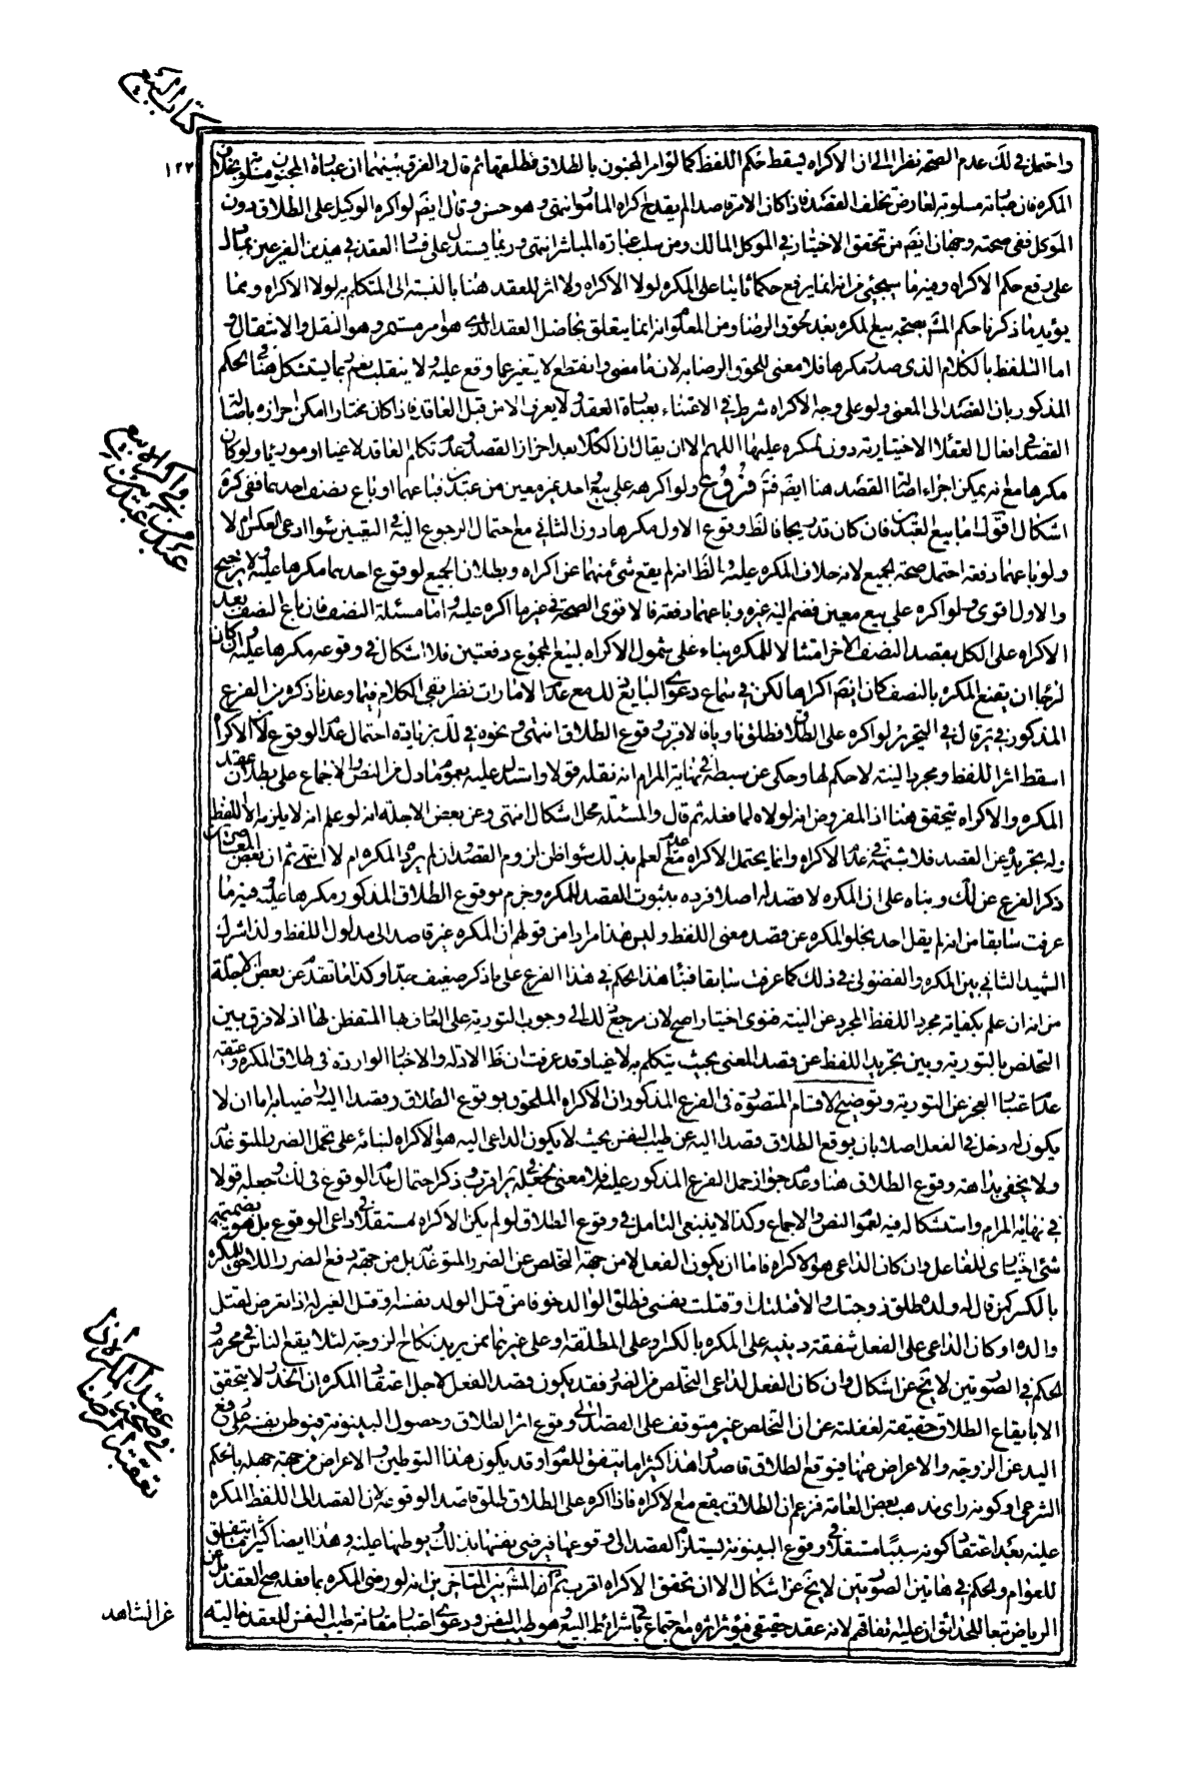 كتاب البيع
١٢٢
واحتمل في لك عدم الصحة نظرا الى ان الاكراه يسقط حكم اللفظ كما لو امر المجنون بالطلاق فطلقها ثم قال والفرق بينهما ان عبارة المجنون مسلوبة بخلاف
المكره فان عبارته مسلوبة لعارض تخلف القصد فاذا كان الامر قاصدا لم يقدح اكراه المامور انتهى وهو حسن وقال ايضم لو اكره الوكيل على الطلاق دون
الموكل ففي صحته وجهان ايضم من تحقق الاختيار في الموكل المالك ومن سلب عبارة المباشر انتهى وربما يستدل على فساد العقد في هذين الفرعين بما دل
على رفع حكم الاكراه وفيه ما سيجئ من انه انما يرفع حكما ثابتا على المكره لولا الاكراه ولا اثر للعقد هنا بالنسبة الى المتكلم به لولا الاكراه ومما
يؤيد ما ذكرنا حكم المشهور بصحة بيع المكره بعد لحوق الرضا ومن المعلوم انه انما يتعلق بحاصل العقد الذي هو امر مستمر وهو النقل والانتقال و
اما التلفظ بالكلام الذي صدر مكرها فلا معنى للحوق الرضا به لان ما مضى وانقطع لا يتغير عما وقع عليه ولا ينقلب نعم ربما يستشكل هنا في الحكم
المذكور بان القصد الى المعنى ولو على وجه الاكراه شرط في الاعتناء بعبارة العقد ولا يعرف الا من قبل العاقد فاذا كان مختارا امكن احرازه باصالة
القصد في افعال العقلاء الاختيارية دون المكره عليها اللهم الا ان يقال ان الكلام بعد احراز القصد وعدم تكلم العاقد لاغيا او موريا ولو كان
مكرها مع انه يمكن اجراء اصالة القصد هنا ايضم فتم فروع ولو اكرهه على بيع احد غير معين من عبدين فباعهما او باع نصف احدهما ففي كره
اشكال اقول اما بيع العبدين فان كان تدريجا فالظ وقوع الاول مكرها دون الثاني مع احتمال الرجوع اليه في التعيين سواء ادعى العكس ام لا
ولو باعهما دفعة احتمل صحة الجميع لانه خلاف المكره عليه والظ انه لم يقع شئ منهما عن اكراه وبطلان الجميع لوقوع احدهما مكرها عليه ولا ترجيح
والاول اقوى ولو اكره على بيع معين فضم اليه غيره وباعهما دفعة فالاقوى الصحة في غير ما اكره عليه واما مسئلة النصف فان باع النصف بعد
الاكراه على الكل بقصد النصف الاخر امتثالا للمكره بناء على شمول الاكراه لبيع المجموع دفعتين فلا اشكال في وقوعه مكرها عليه وان كان
لرجاء ان يقنع المكره بالنصف كان ايضم اكراها لكن في سماع دعوى البايع ذلك مع عدم الامارات نظر بقي الكلام فيما وعدنا ذكره من الفرع
المذكور في ير قال في التحرير لو اكره على الطلاق فطلق ناويا فالاقرب وقوع الطلاق انتهى ونحوه في لك بزيادة احتمال عدم الوقوع لان الاكراه
اسقط اثر اللفظ ومجرد النية لا حكم لها وحكى عن سبطه في نهاية المرام انه نقله قولا واستدل عليه بعموم ما دل من النص والاجماع على بطلان عقد
المكره والاكراه يتحقق هنا اذ المفروض انه لولاه لما فعله ثم قال والمسئلة محل اشكال انتهى وعن بعض الاجلة انه لو علم انه لا يلزمه الا اللفظ
وله تجريده عن القصد فلا شبهة في عدم الاكراه وانما يحتمل الاكراه مع عدم العلم بذلك سواء ظن لزوم القصد وان لم يرده المكره ام لا انتهى ثم ان بعض المعاصرين
ذكر الفرع عن لك وبناه على ان المكره لا قصد له اصلا فرده بثبوت القصد للمكره وجزم بوقوع الطلاق المذكور مكرها عليه وفيه ما
عرفت سابقا من انه لم يقل احد بخلو المكره عن قصد معنى اللفظ وليس هذا مرادا من قولهم ان المكره غير قاصد الى مدلول اللفظ ولذا شرك
الشهيد الثاني بين المكره والفضولي في ذلك كما عرفت سابقا فبناء هذا الحكم في هذا الفرع على ما ذكر ضعيف جدا وكذا ما تقدم عن بعض الاجلة
من انه ان علم بكفاية مجرد اللفظ المجرد عن النية فنوى اختيارا صح لان مرجع ذلك الى وجوب التورية على العارف بها المتفطن لها اذ لا فرق بين
التخلص بالتورية وبين تجريد اللفظ عن قصد المعنى بحيث يتكلم به لاغيا وقد عرفت ان ظ الادلة والاخبار الواردة في طلاق المكره وعتقه
عدم اعتبار العجز عن التورية وتوضيح الاقسام المتصورة في الفرع المذكور ان الاكراه الملحق بوقوع الطلاق وقصدا اليه راضيا به اما ان لا
يكون له دخل في الفعل اصلا بان يوقع الطلاق قصدا اليه عن طيب النفس بحيث لا يكون الداعي اليه هو الاكراه لبنائه على تحمل الضرر المتوعد به
ولا يخفى بداهة وقوع الطلاق هنا وعدم جواز حمل الفرع المذكور عليه فلا معنى لجعله في ير اقرب وذكر احتمال عدم الوقوع في لك وجعله قولا
في نهاية المرام واستشكاله فيه لعموم النص والاجماع وكذا لا ينبغي التامل في وقوع الطلاق لو لم يكن الاكراه مستقلا في داعي الوقوع بل هو بضميمة
شئ اختياري للفاعل وان كان الداعي هو الاكراه فاما ان يكون الفعل لا من جهة التخلص عن الضرر المتوعد به بل من جهة دفع الضرر اللاحق للمكره
بالكسر كمن قال له ولده طلق زوجتك والا قتلتك او قتلت نفسي فطلق الوالد خوفا من قتل الولد نفسه او قتل الغير له اذا تعرض لقتل
والده او كان الداعي على الفعل شفقة دينية على المكره بالكسر او على المطلقة او على غيرهما ممن يريد نكاح الزوجة لئلا يقع الناس في محرم و
الحكم في الصورتين لا يخ عن اشكال وان كان الفعل لداعي التخلص من الضرر فقد يكون قصد الفعل لاجل اعتقاد المكره ان الحذر لا يتحقق
الا بايقاع الطلاق حقيقة لغفلته عن ان التخلص غير متوقف على القصد الى وقوع اثر الطلاق وحصول البينونة فيوطن نفسه على رفع
اليد عن الزوجة والاعراض عنها فيوقع الطلاق قاصدا وهذا كثيرا ما يتفق للعوام وقد يكون هذا التوطين والاعراض من جهة جهله بالحكم
الشرعي او كونه راى مذهب بعض العامة فزعم ان الطلاق يقع مع الاكراه فاذا اكره على الطلاق طلق قاصدا لوقوعه لان القصد الى اللفظ المكره
عليه بعد اعتقاد كونه سببا مستقلا في وقوع البينونة يستلزم القصد الى وقوعها فيرضى نفسه بذلك ويوطنها عليه وهذا ايضا كثيرا ما يتفق
للعوام والحكم في هاتين الصورتين لا يخ عن اشكال الا ان تحقق الاكراه اقرب ثم المشهور بين المتاخرين انه لو رضى المكره بما فعله صح العقد بل عن
الرياض تبعا للحدائق ان عليه اتفاقهم لانه عقد حقيقي فيؤثر اثره مع اجتماع باقي شرائط البيع وهو طيب النفس ودعوى اعتبار مقارنة طيب النفس للعقد خالية
عن الشاهد
في عقد المكره اذا تعقبه الرضا